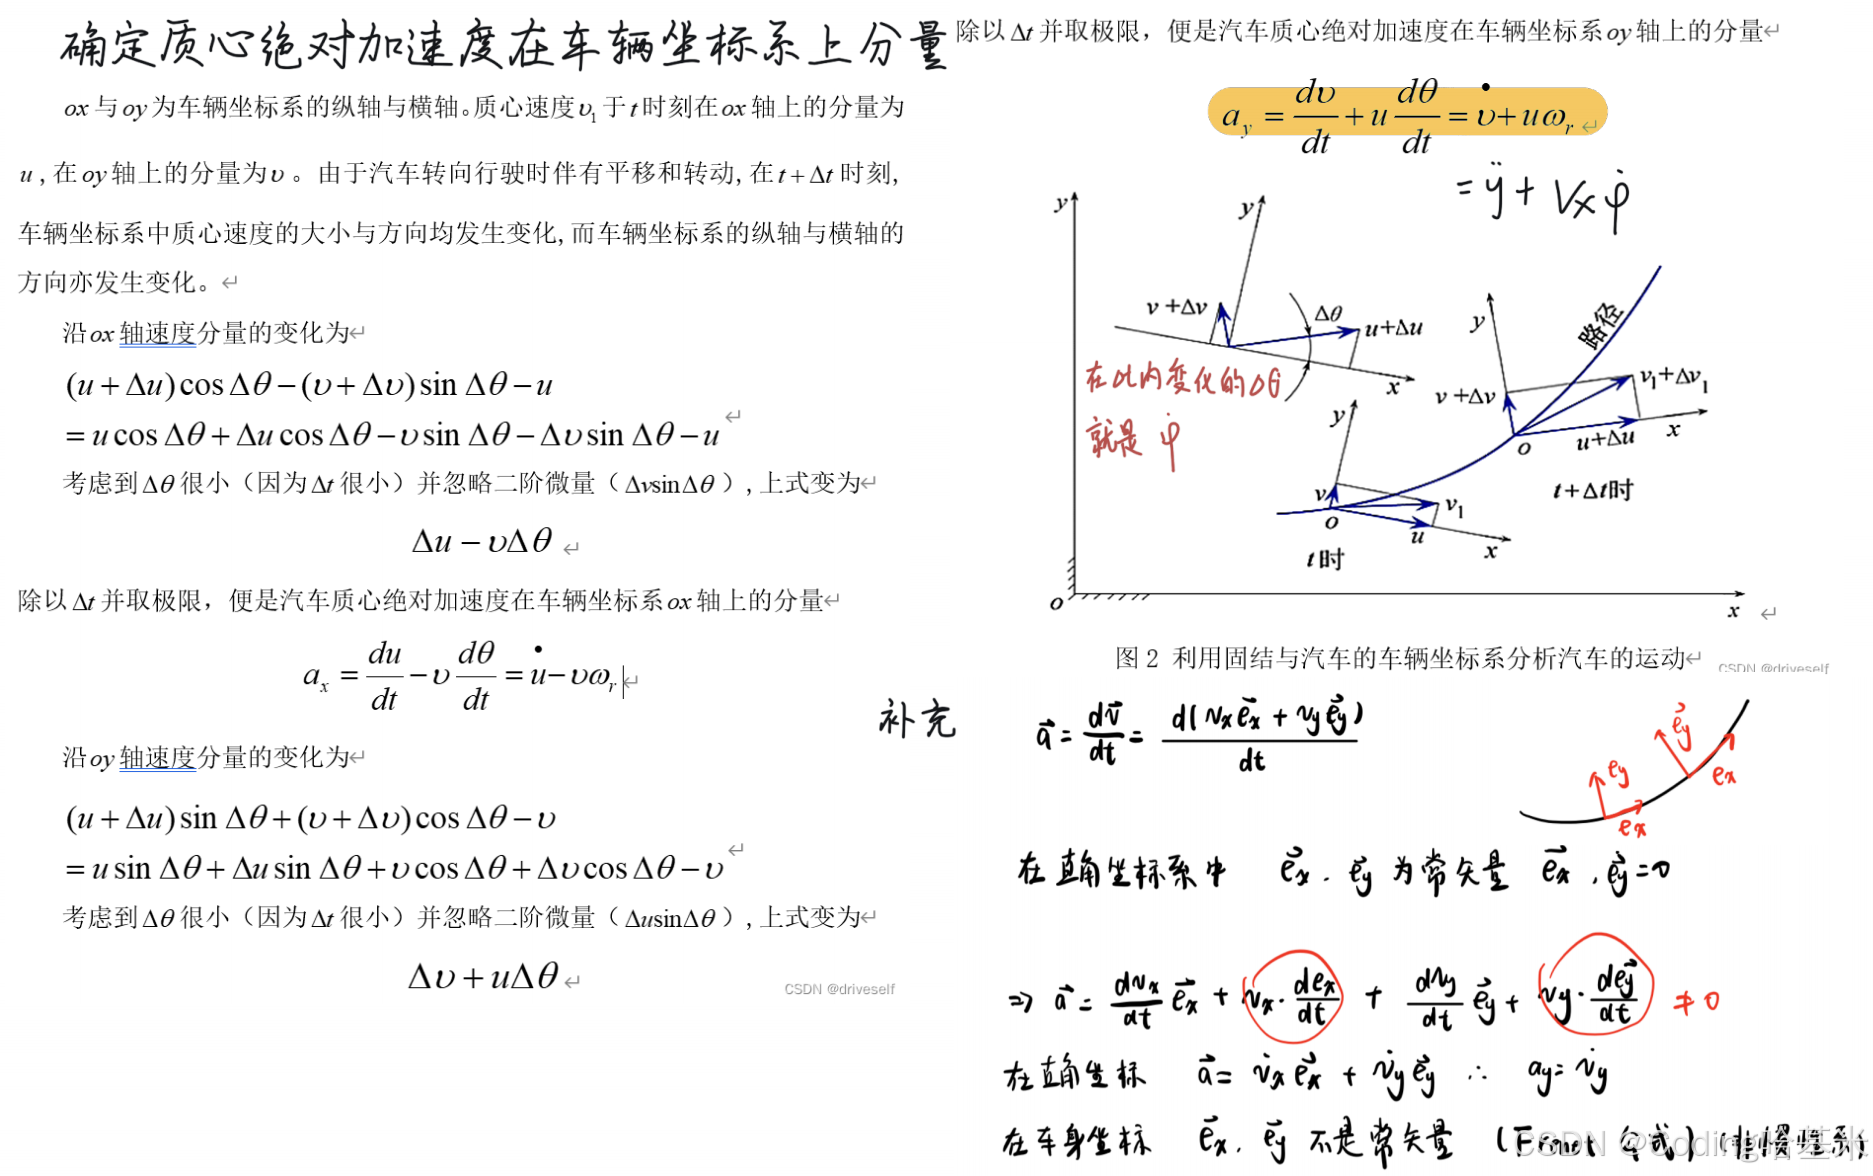 确定质心绝对加速度在车辆坐标系上分量
ox与oy为车辆坐标系的纵轴与横轴。质心速度υ₁于t时刻在ox轴上的分量为
u,在oy轴上的分量为υ。由于汽车转向行驶时伴有平移和转动,在t+Δt时刻,
车辆坐标系中质心速度的大小与方向均发生变化,而车辆坐标系的纵轴与横轴的
方向亦发生变化。
沿ox轴速度分量的变化为
(u+Δu)cosΔθ−(υ+Δυ)sinΔθ−u
=ucosΔθ+ΔucosΔθ−υsinΔθ−ΔυsinΔθ−u
考虑到Δθ很小（因为Δt很小）并忽略二阶微量（ΔvsinΔθ）,上式变为
Δu−υΔθ
除以Δt并取极限，便是汽车质心绝对加速度在车辆坐标系ox轴上的分量
aₓ = du/dt − υ dθ/dt = u̇ − υωᵣ
沿oy轴速度分量的变化为
(u+Δu)sinΔθ+(υ+Δυ)cosΔθ−υ
=usinΔθ+ΔusinΔθ+υcosΔθ+ΔυcosΔθ−υ
考虑到Δθ很小（因为Δt很小）并忽略二阶微量（ΔusinΔθ）,上式变为
Δυ+uΔθ
CSDN @driveself
除以Δt并取极限，便是汽车质心绝对加速度在车辆坐标系oy轴上的分量
a_y = dυ/dt + u dθ/dt = υ̇ + uωᵣ
= ÿ + Vxφ̇
y
y
v+Δv
Δθ
u+Δu
x
在此内变化的Δθ
就是 φ̇
y
路径
v+Δv
v₁+Δv₁
u+Δu
x
o
t+Δt时
y
v
v₁
o
u
x
t时
o
x
图2 利用固结与汽车的车辆坐标系分析汽车的运动
CSDN @driveself
补充
a⃗ = dv⃗/dt = d(vx e⃗x + vy e⃗y)/dt
e⃗y
ey
ex
ex
在直角坐标系中 e⃗x . e⃗y 为常矢量 e⃗x , e⃗y = 0
⇒ a⃗ = dvx/dt e⃗x + vx · dex/dt + dvy/dt e⃗y + vy · de⃗y/dt ≠ 0
在直角坐标 a⃗ = v̇x e⃗x + v̇y e⃗y ∴ ay = v̇y
在车身坐标 e⃗x . e⃗y 不是常矢量
CSDN @Coding哈基米